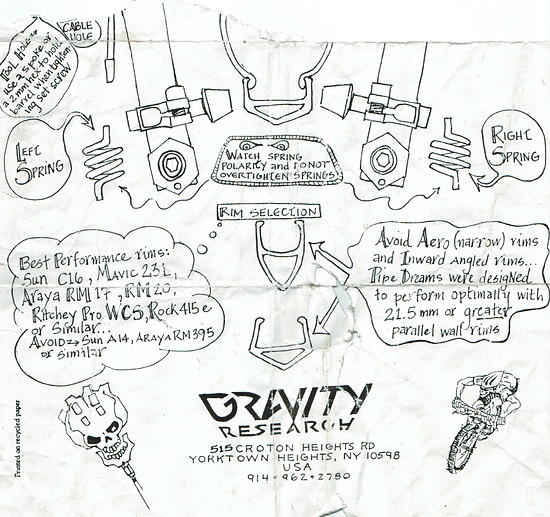 CABLE
HOLE
TOOL HOLE→
use a spoke or
a 2mm hex to hold
barrel when tighten-
ing set screw
LEFT
SPRING
WATCH SPRING
POLARITY and DO NOT
OVERTIGHTEN SPRINGS
RIGHT
SPRING
RIM SELECTION
Best Performance rims:
Sun C16, Mavic 231,
Araya RM17, RM20,
Ritchey Pro WCS, Rock 415e
or Similar...
AVOID→ Sun A14, ARAYA RM395
or similar
Avoid Aero (narrow) rims
and Inward Angled rims...
Pipe Dreams were designed
to perform optimally with
21.5 mm or greater
parallel wall rims
GRAVITY
RESEARCH
515 CROTON HEIGHTS RD
YORKTOWN HEIGHTS, NY 10598
USA
914·962·2780
Printed on recycled paper